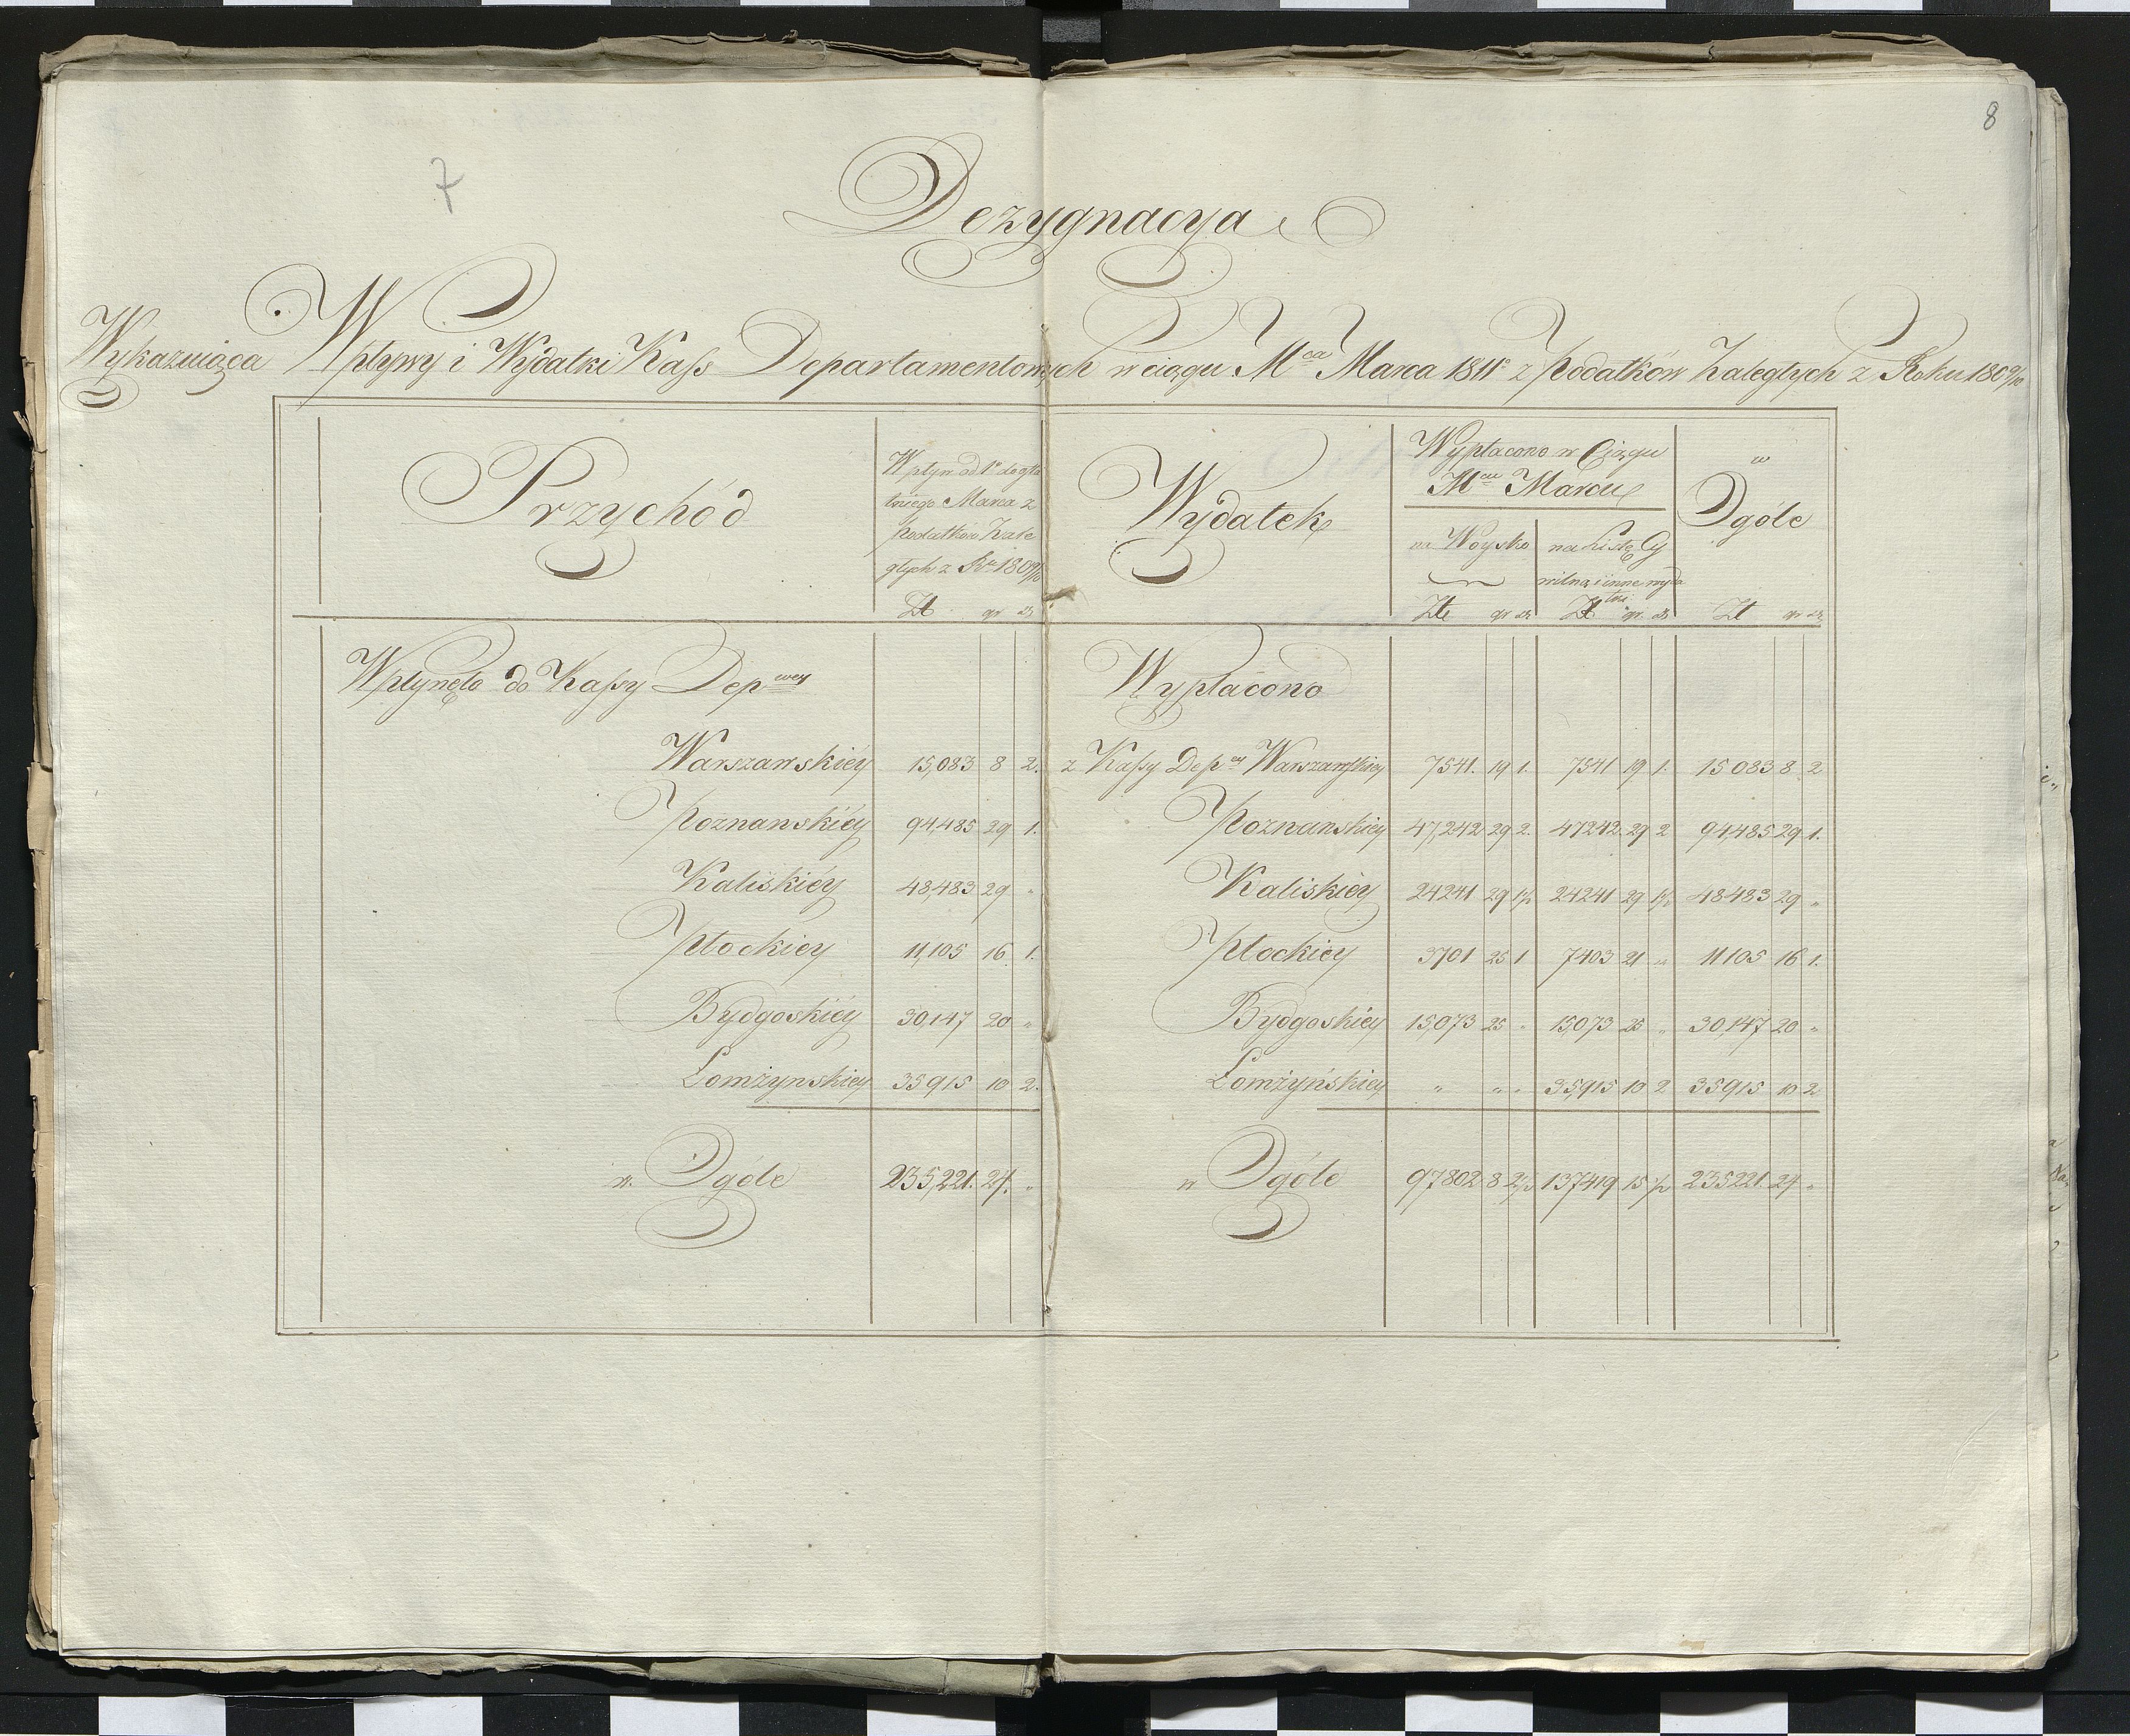 7
8
Dezygnacya
Wykazuiąca Wpływy i Wydatki Kass Departamentowych w ciągu Mca Marca 1811o z Podatków Zaległych z Roku 1809/10
Przychód
Wpływ od 1o do osta
tniego Marca z
Podatków Zale
głych z Ru 1809/10
Zł gr
Wydatek
Wypłacono w Ciągu
Mca Marcu
na Woysko
na Listę Cy
wilną i inne wyda
tki
w
Ogóle
Złt gr Zł gr Zł gr
Wpłynęło do Kassy Depwey
Wypłacono
Warszawskiéy 15,083 8 2. z Kassy Depey Warszawskiey 7541. 19 1. 7541 19 1. 15083 8 2
Poznanskiéy 94,485 29 1. Poznanskiey 47,242 29 2. 47242 29 2 94,485 29 1.
Kaliskiéy 48,483 29 " Kaliskiéy 24241 29 1½ 24241 29 1½ 48483 29 "
Płockiey 11,105 16 1. Płockiey 3701 25 1 7403 21 " 11105 16 1.
Bydgoskiéy 30,147 20 " Bydgoskiéy 15,073 25 " 15,073 25 " 30,147 20 "
Łomżynskiey 35915 10 2. Łomżyńskiey " " " 35,915 10 2 35915 10 2
w Ogóle 235,221. 24. " w Ogóle 97802 8 2½ 137419 15 ½ 235221. 24 "